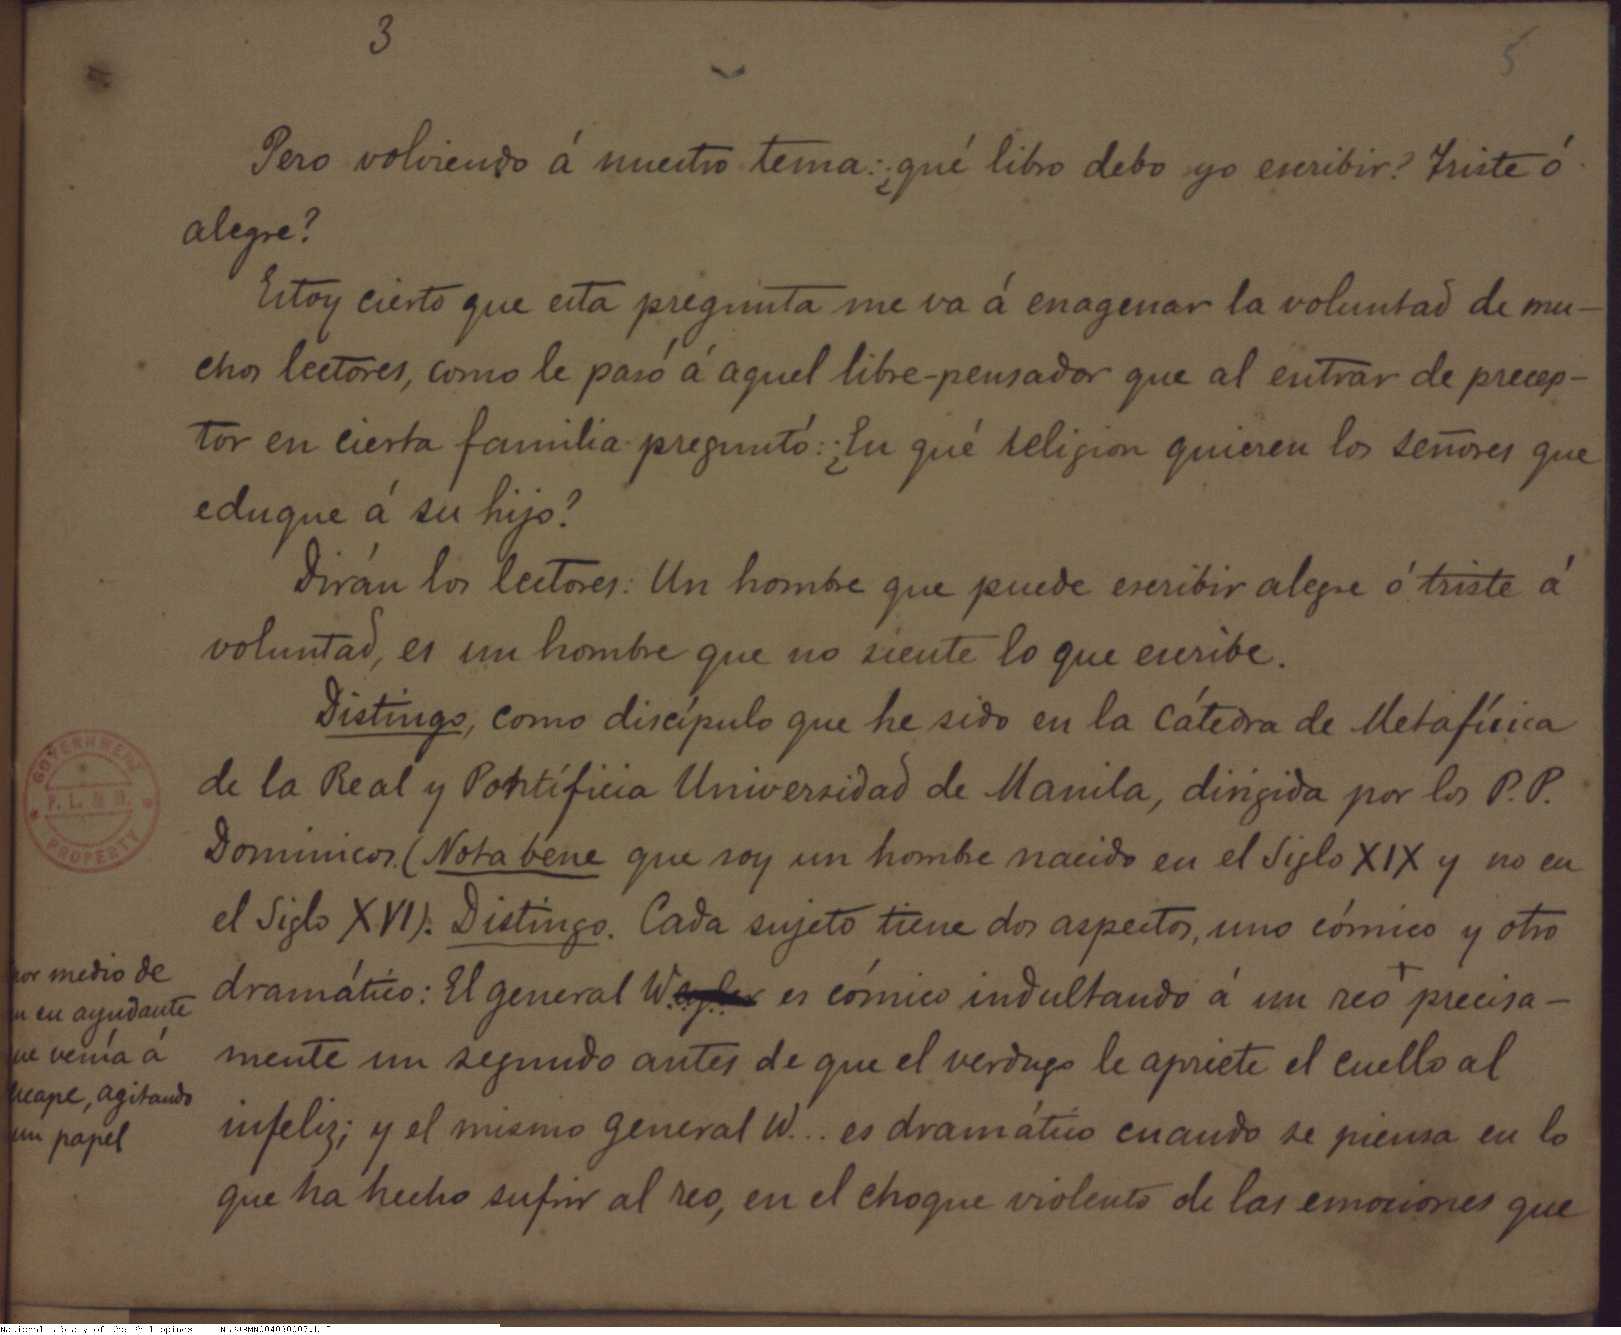 3
5
Pero volviendo á nuestro tema: ¿qué libro debo yo escribir? Triste ó
alegre?
Estoy cierto que esta pregunta me va á enagenar la voluntad de mu-
chos lectores, como le pasó á aquel libre-pensador que al entrar de precep-
tor en cierta familia preguntó: ¿En qué religion quieren los señores que
eduque á su hijo?
Dirán los lectores: Un hombre que puede escribir alegre ó triste á
voluntad, es un hombre que no siente lo que escribe.
Distingo, como discípulo que he sido en la Cátedra de Metafísica
de la Real y Pontíficia Universidad de Manila, dirigida por los P.P.
Dominicos. (Nota bene que soy un hombre nacido en el Siglo XIX y no en
el Siglo XVI): Distingo. Cada sujeto tiene dos aspectos, uno cómico y otro
dramático: El general W... es cómico indultando á un reo + precisa-
mente un segundo antes de que el verdugo le apriete el cuello al
infeliz; y el mismo general W... es dramático cuando se piensa en lo
que ha hecho sufrir al reo, en el choque violento de las emociones que
por medio de
un ayudante
que venía á
escape, agitando
un papel
GOVERNMENT
P. L. & M.
PROPERTY
National Library of the Philippines